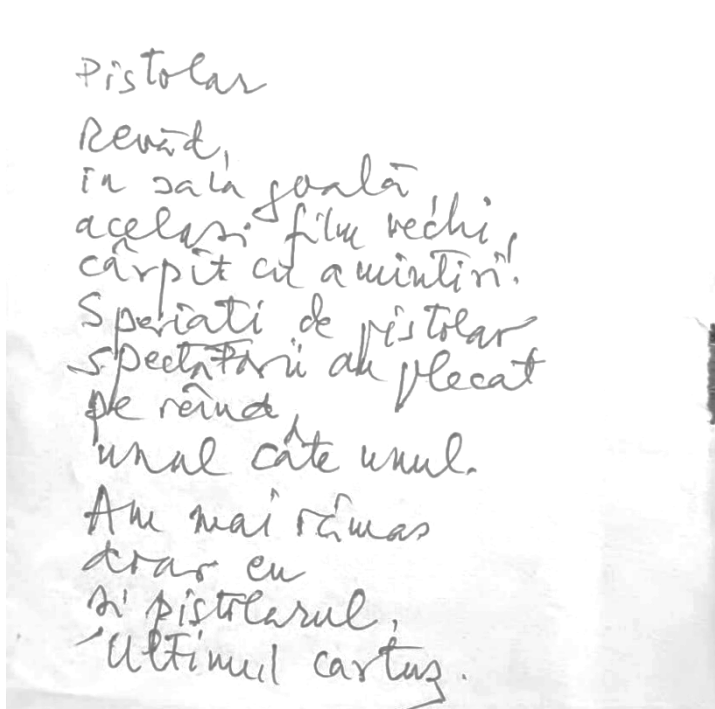 Pistolar
Revăd,
în sala goală,
același film vechi,
cârpit cu amintiri.
Speriați de pistolar
spectatorii au plecat
pe rând,
unul câte unul.
Am mai rămas
doar eu
și pistolarul,
Ultimul cartuș.